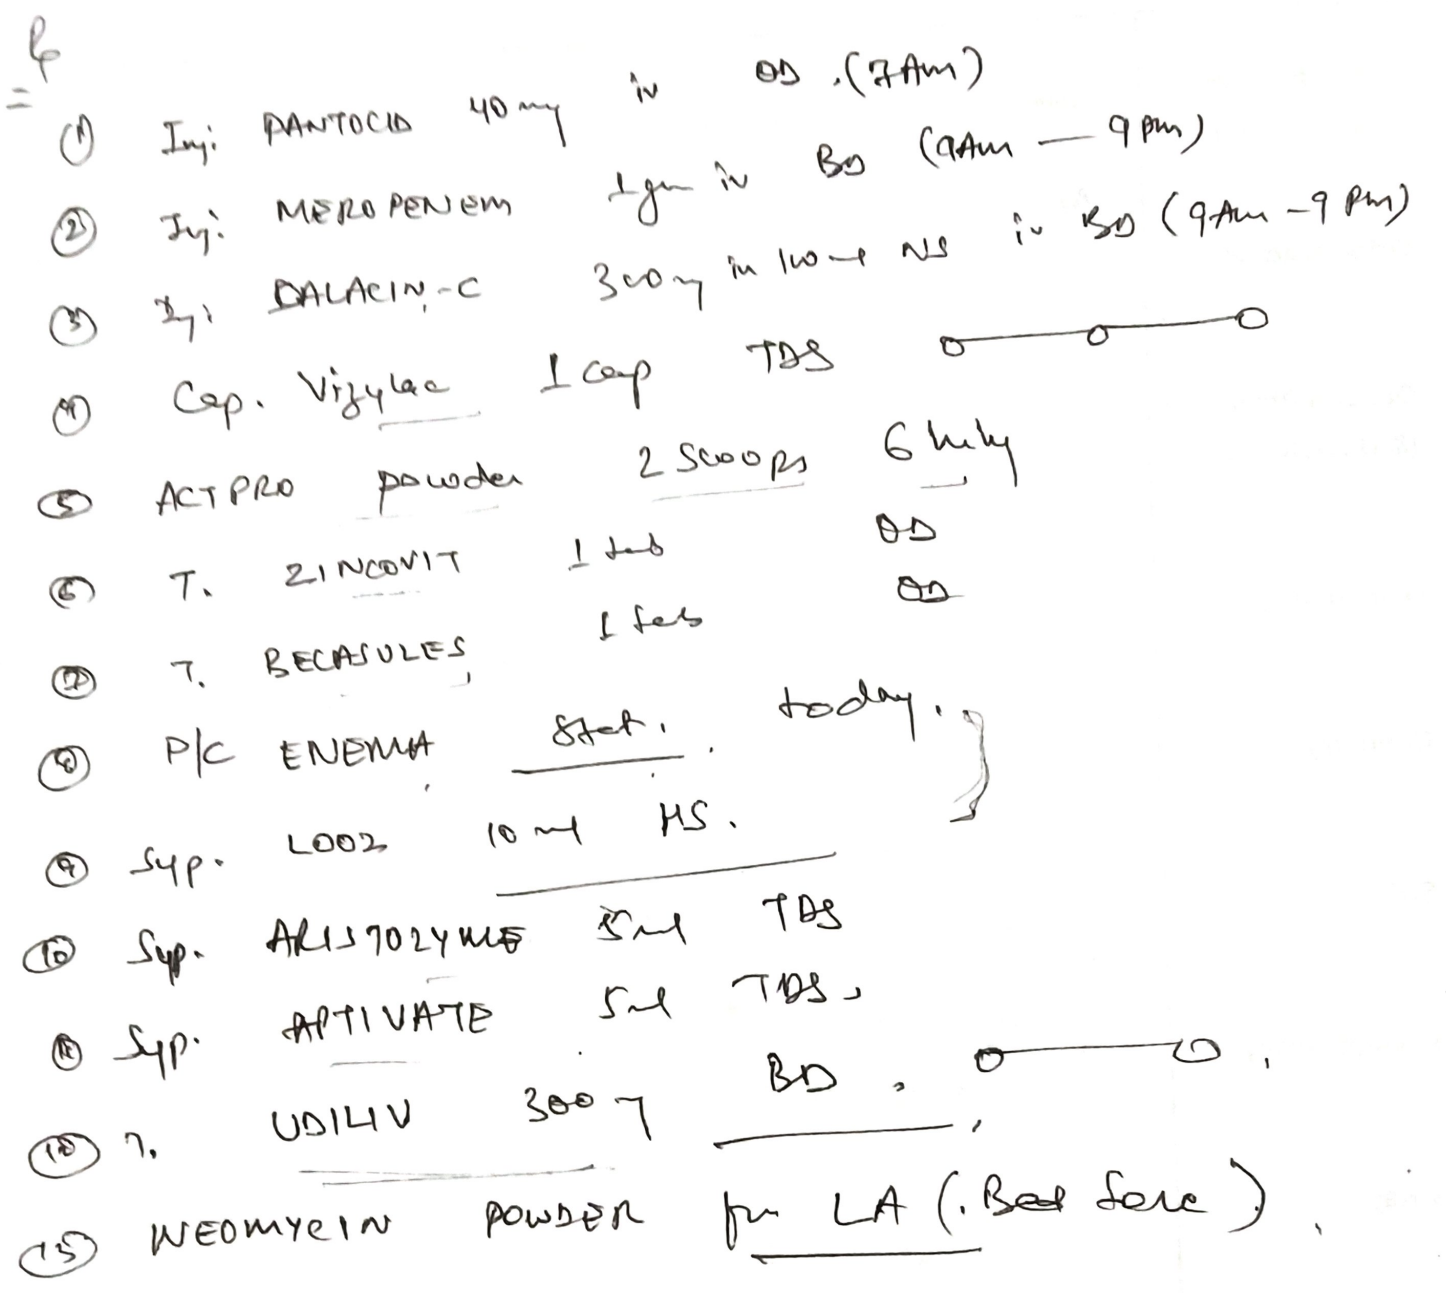 Rx
① Inj: PANTOCID 40 mg iv OD. (7Am)
② Inj: MEROPENEM 1 gm iv BD (9Am — 9pm)
③ Inj: DALACIN-C 300mg in 100ml NS iv BD (9Am - 9Pm)
④ Cap. Vizylac 1 cap TDS
⑤ ACTPRO powder 2 scoops 6 hrly
⑥ T. ZINCOVIT 1 tab OD
⑦ T. BECASULES 1 tab OD
⑧ P/C ENEMA Stat. today.
⑨ Syp. LOOZ 10 ml HS.
⑩ Syp. ARISTOZYME 5ml TDS
⑪ Syp. APTIVATE 5ml TDS,
⑫ T. UDILIV 300mg BD.
⑬ NEOMYCIN POWDER for LA (Bed Sore).